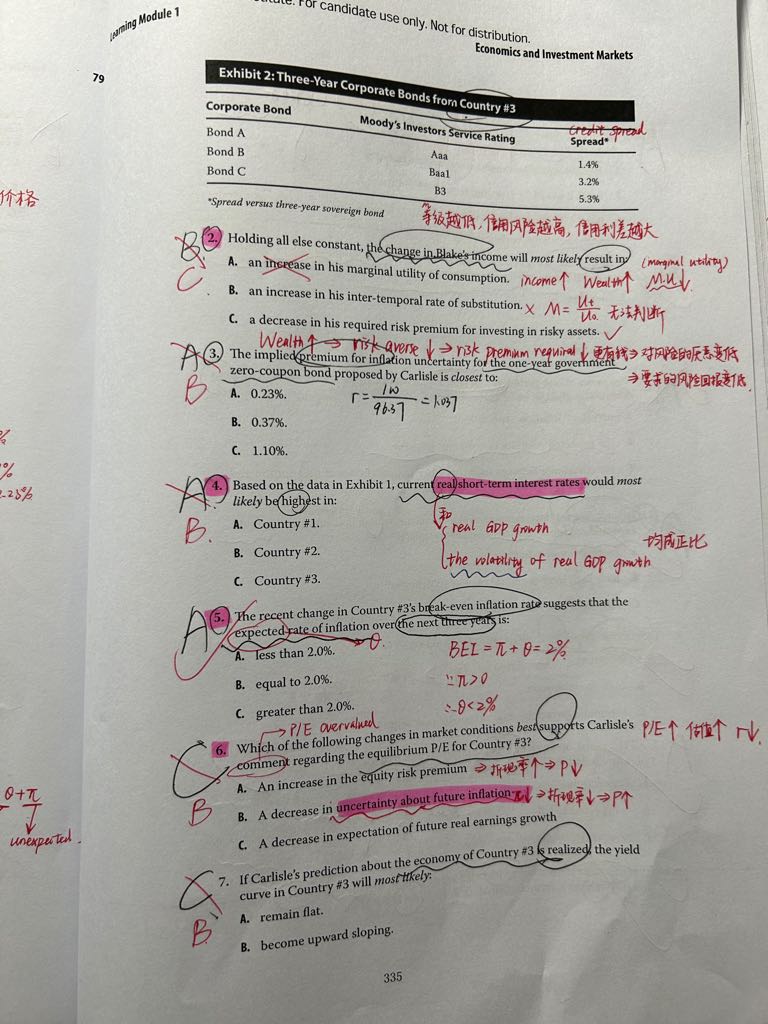 Learning Module 1
For candidate use only. Not for distribution.
Economics and Investment Markets
79
Exhibit 2: Three-Year Corporate Bonds from Country #3
credit spread
Corporate Bond Moody's Investors Service Rating Spread*
Bond A Aaa 1.4%
Bond B Baa1 3.2%
Bond C B3 5.3%
*Spread versus three-year sovereign bond
等级越低，信用风险越高，信用利差越大
价格
B
C
2. Holding all else constant, the change in Blake's income will most likely result in:
(marginal utility)
A. an increase in his marginal utility of consumption.
income↑ Wealth↑ M.U↓
B. an increase in his inter-temporal rate of substitution.
× M = Ut/U0 无法判断
C. a decrease in his required risk premium for investing in risky assets. ✓
Wealth↑ → risk averse↓ → risk premium required↓ 更有钱 → 对风险的厌恶度低
⇒ 要求的风险回报变低
A
B
3. The implied premium for inflation uncertainty for the one-year government
zero-coupon bond proposed by Carlisle is closest to:
A. 0.23%.
r = 100/96.37 = 1.037
B. 0.37%.
C. 1.10%.
A
B.
4. Based on the data in Exhibit 1, current real short-term interest rates would most
likely be highest in:
A. Country #1.
和
real GDP growth
B. Country #2.
the volatility of real GDP growth
均成正比
C. Country #3.
A
5. The recent change in Country #3's break-even inflation rate suggests that the
expected rate of inflation over the next three years is:
θ.
A. less than 2.0%.
BEI = π + θ = 2%
B. equal to 2.0%.
∵ π>0
C. greater than 2.0%.
∴ θ<2%
P/E overvalued
C
B
6. Which of the following changes in market conditions best supports Carlisle's
comment regarding the equilibrium P/E for Country #3?
P/E↑ 估值↑ r↓.
A. An increase in the equity risk premium
⇒ 折现率↑ ⇒ P↓
B. A decrease in uncertainty about future inflation
π↓ ⇒ 折现率↓ ⇒ P↑
C. A decrease in expectation of future real earnings growth
θ+π
unexpected.
C
B
7. If Carlisle's prediction about the economy of Country #3 is realized, the yield
curve in Country #3 will most likely:
A. remain flat.
B. become upward sloping.
335